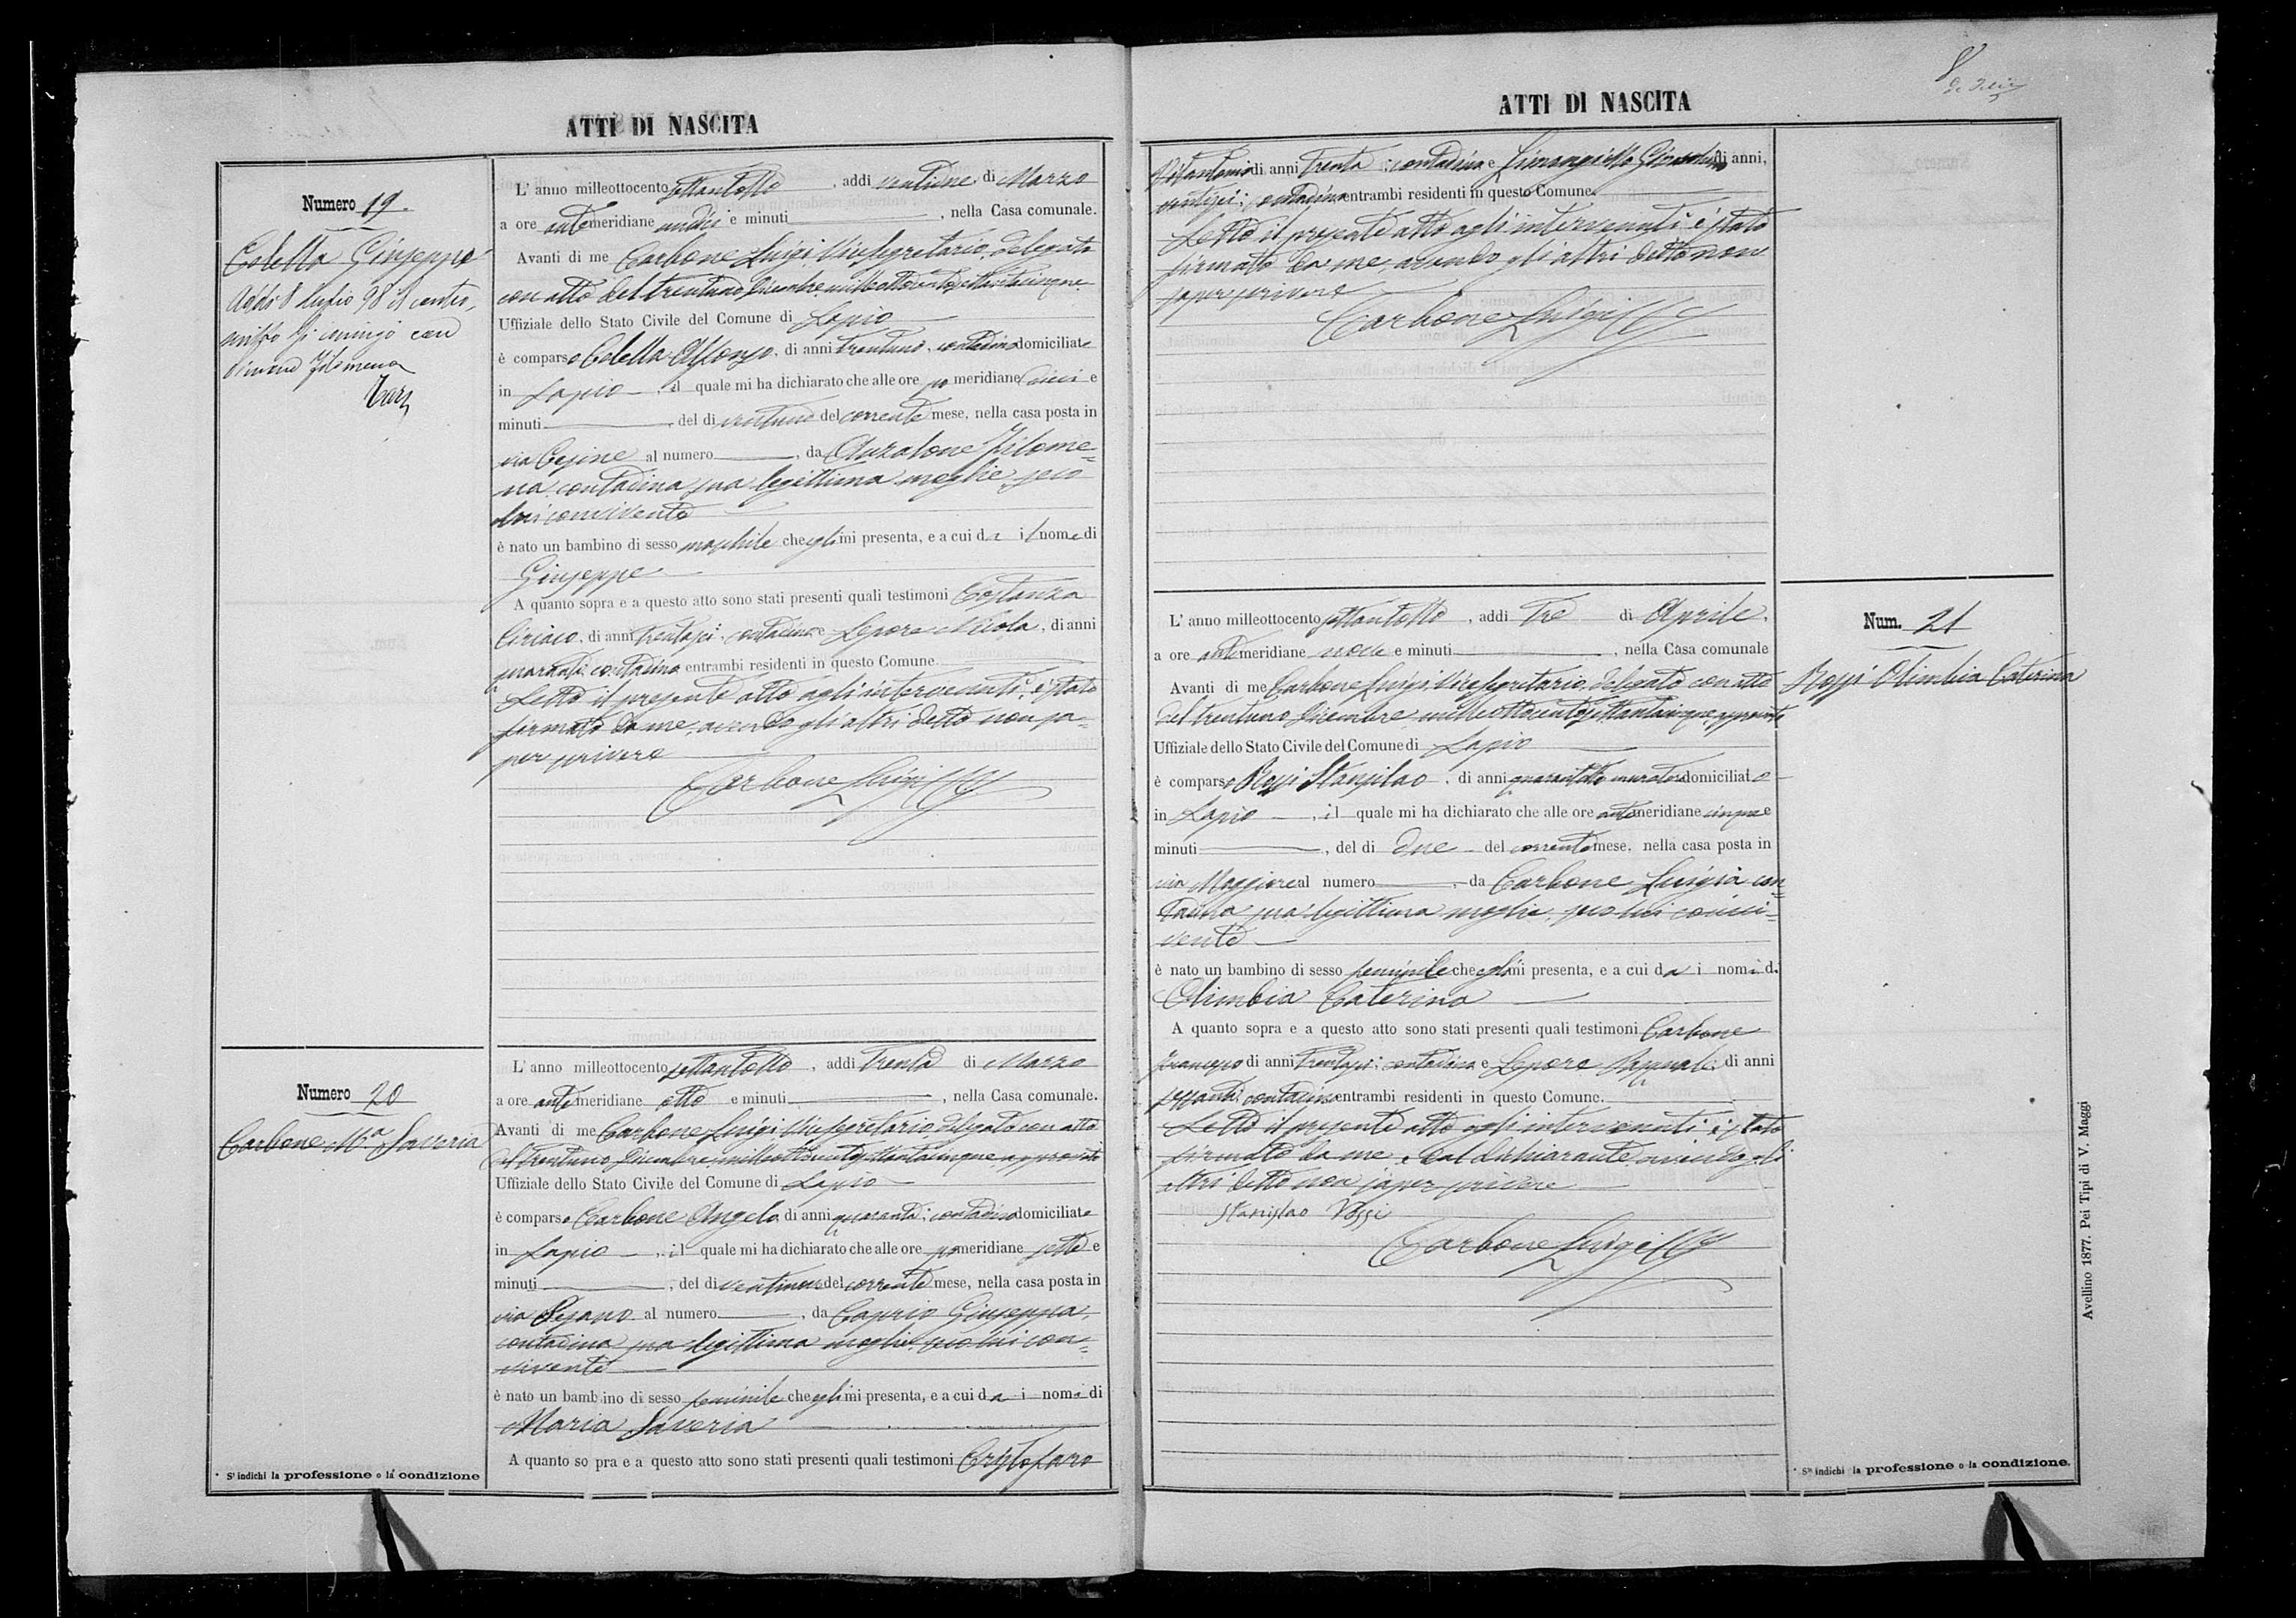 ATTI DI NASCITA
Numero 19.
Colella Giuseppe
Addi 8 Luglio 98 si contes.
con
Filomena
L'anno milleottocento settantotto, addi ventidue di Marzo
a ore antemeridiane undici e minuti , nella Casa comunale.
Avanti di me Carbone Luigi Vicesegretario, delegato
con atto del trentuno Dicembre milleottocentosettantacinque
Uffiziale dello Stato Civile del Comune di Lapio
è comparso Colella Alfonso, di anni trentuno, contadino domiciliato
in Lapio, il quale mi ha dichiarato che alle ore pomeridiane dieci e
minuti , del dì ventuno del corrente mese, nella casa posta in
via Cesine al numero , da Anzalone Filome=
na contadina sua legittima moglie, seco
lui convivente
è nato un bambino di sesso maschile che egli mi presenta, e a cui da il nome di
Giuseppe
A quanto sopra e a questo atto sono stati presenti quali testimoni Costanza
Ciriaco, di anni trentasei, contadino e Lepore Nicola, di anni
quaranta contadino entrambi residenti in questo Comune.
Letto il presente atto agli intervenuti è stato
firmato da me, avendo gli altri detto non sa=
per scrivere
Carbone Luigi
Numero 20
Carbone M.a Saveria
L'anno milleottocento settantotto, addi trenta di Marzo
a ore antemeridiane otto e minuti , nella Casa comunale.
Avanti di me Carbone Luigi Vicesegretario delegato con atto
del trentuno Dicembre milleottocentosettantacinque approvato
Uffiziale dello Stato Civile del Comune di Lapio
è comparso Carbone Angelo di anni quaranta; contadino domiciliato
in Lapio, il quale mi ha dichiarato che alle ore pomeridiane sette e
minuti , del dì ventinove del corrente mese, nella casa posta in
via al numero , da Caprio Giuseppa,
contadina sua legittima moglie, seco lui con=
vivente
è nato un bambino di sesso feminile che egli mi presenta, e a cui da i nomi di
Maria Saveria
A quanto sopra e a questo atto sono stati presenti quali testimoni Cristofaro
* S'indichi la professione o la condizione
ATTI DI NASCITA
8
di anni trenta; contadino e di anni,
ventisei; contadino entrambi residenti in questo Comune.
Letto il presente atto agli intervenuti è stato
firmato da me, avendo gli altri detto non
saper scrivere
Carbone Luigi
L'anno milleottocento settantotto, addi tre di Aprile,
a ore antimeridiane nove e minuti , nella Casa comunale
Avanti di me Carbone Luigi Vicesegretario, delegato con atto
del trentuno Dicembre milleottocentosettantacinque, approvato
Uffiziale dello Stato Civile del Comune di Lapio
è comparso Rossi Stanislao, di anni quarantotto muratore domiciliato
in Lapio, il quale mi ha dichiarato che alle ore antemeridiane cinque e
minuti , del dì due del corrente mese, nella casa posta in
via Maggiore al numero , da Carbone Luigia con=
tadina sua legittima moglie, seco lui convi=
vente
è nato un bambino di sesso feminile che egli mi presenta, e a cui da i nomi di
Olimbia Caterina
A quanto sopra e a questo atto sono stati presenti quali testimoni Carbone
Francesco di anni trentasei; contadino e Lepore Pasquale, di anni
sessanta, contadino entrambi residenti in questo Comune.
Letto il presente atto agli intervenuti, è stato
firmato da me, e dal dichiarante avendo gli
altri detto non saper scrivere
Stanislao Rossi
Carbone Luigi
Num. 21
Rossi Olimbia Caterina
* S'indichi la professione o la condizione.
Avellino 1877. Pei Tipi di V. Maggi